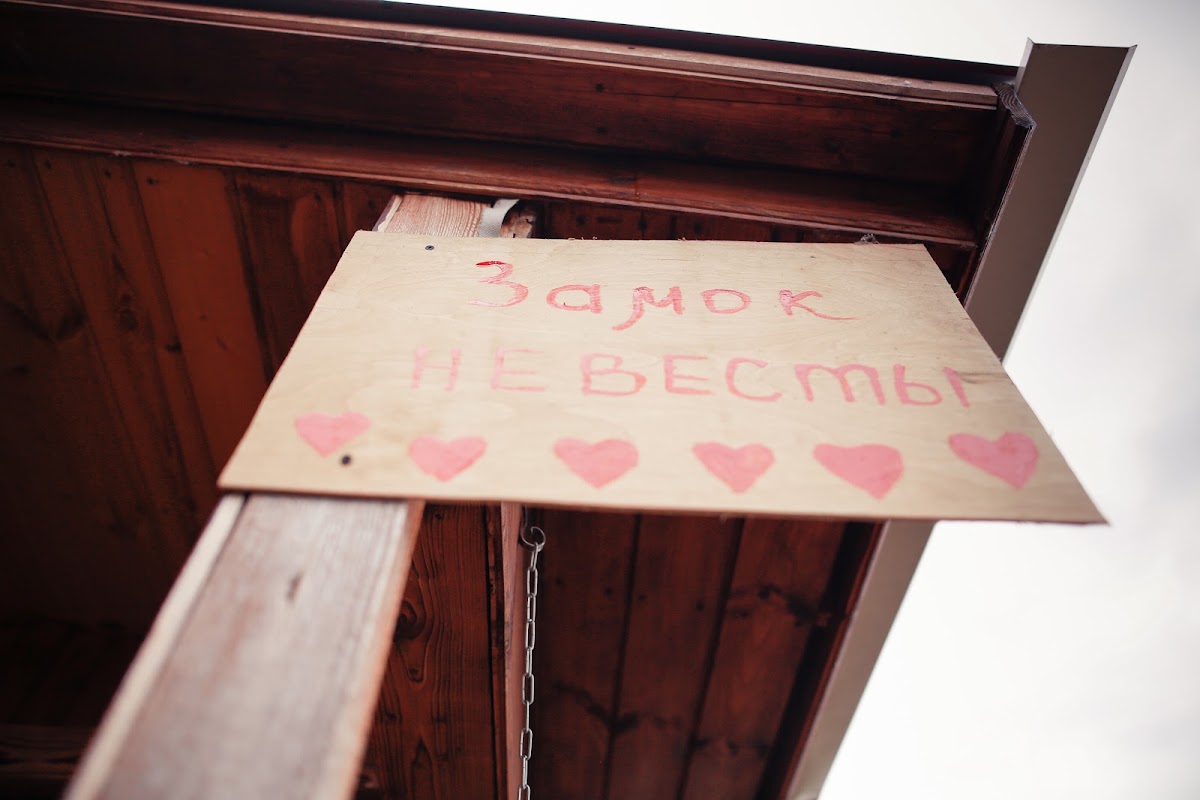 Замок
НЕВЕСТЫ